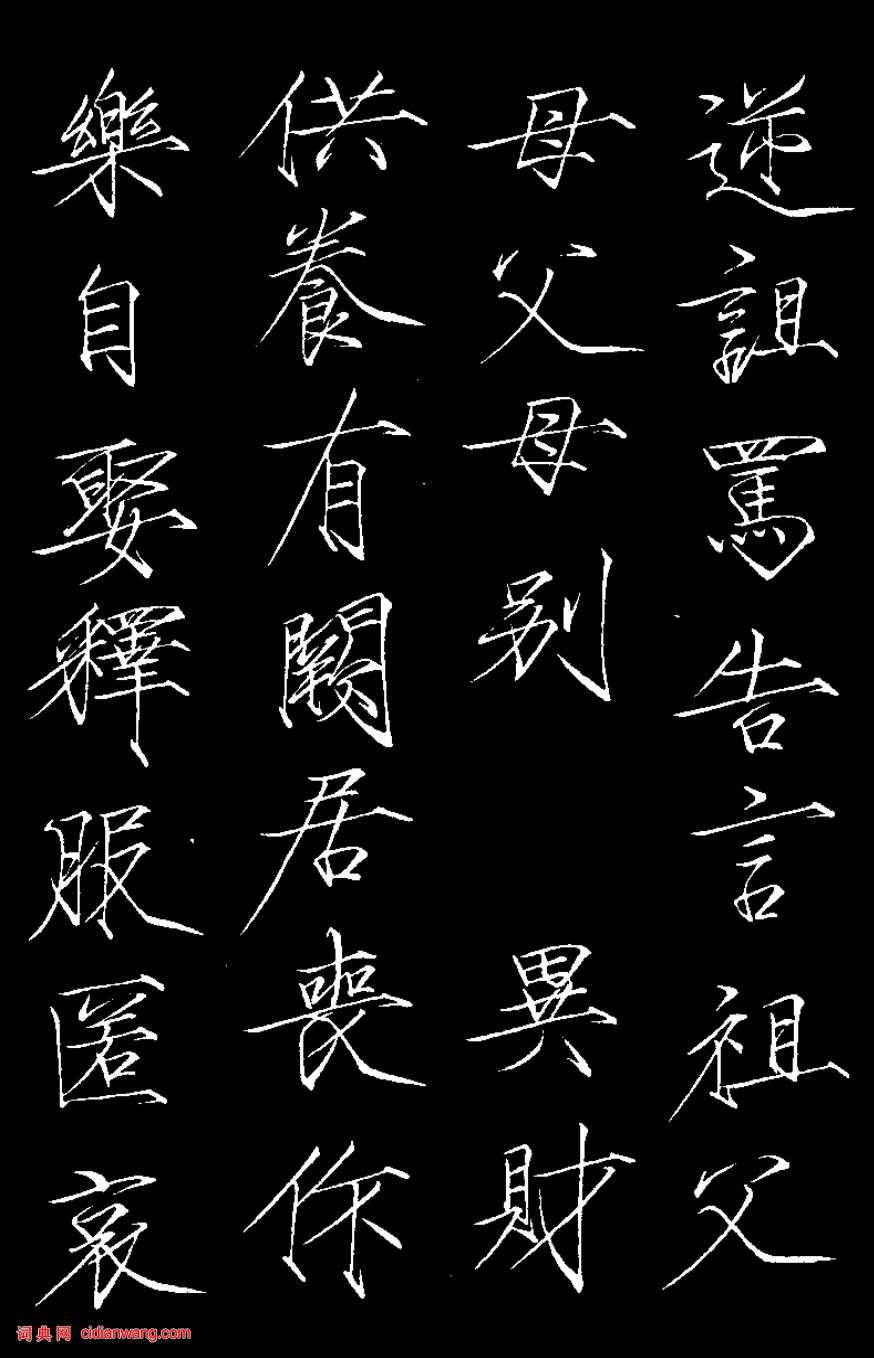 逆詛罵告言祖父
母父母别異財
供養有闕居喪作
樂自娶釋服匿哀
词典网 cidianwang.com